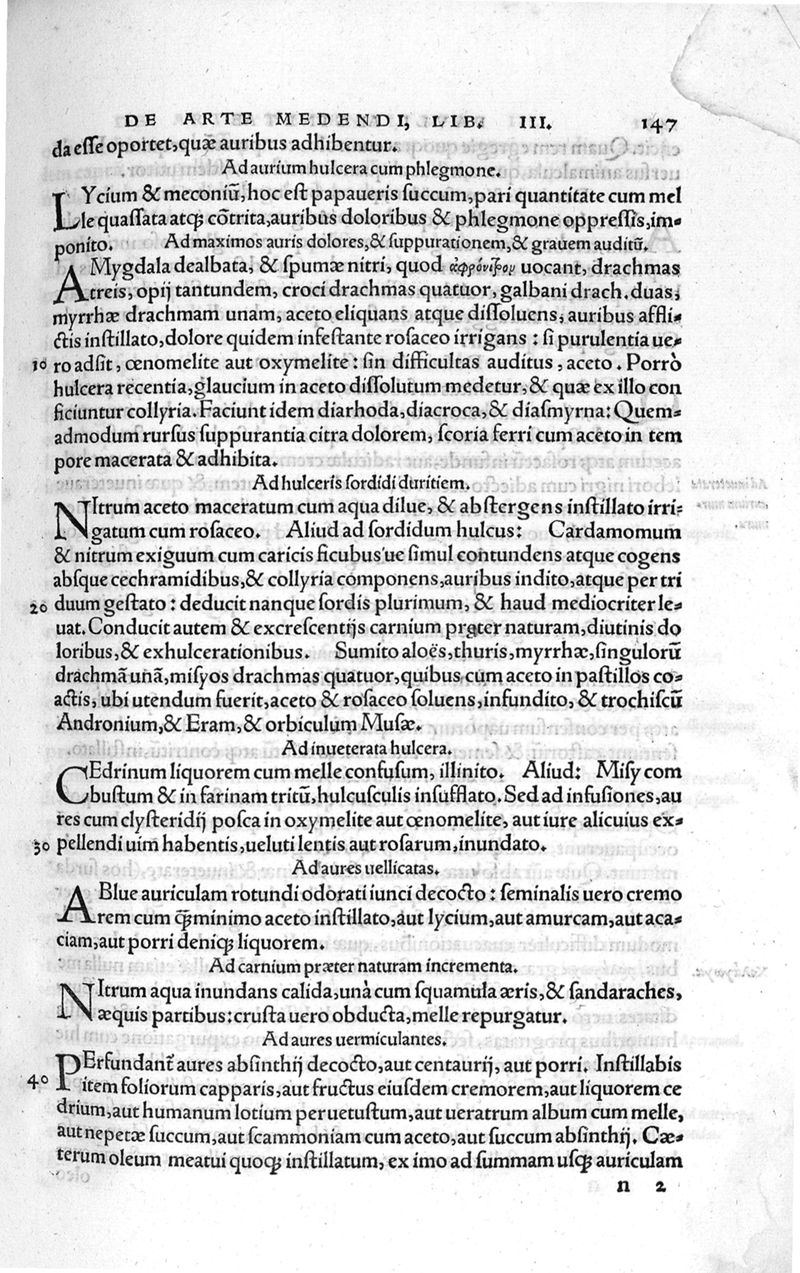 DE ARTE MEDENDI, LIB. III. 147
da esse oportet, quæ auribus adhibentur.
Ad aurium hulcera cum phlegmone.
LYcium & meconiũ, hoc est papaueris succum, pari quantitate cum mel
le quassata atq; cõtrita, auribus doloribus & phlegmone oppressis, im-
ponito. Ad maximos auris dolores, & suppurationem, & grauem auditũ.
AMygdala dealbata, & spumæ nitri, quod ἀφρόνιτρον uocant, drachmas
treis, opij tantundem, croci drachmas quatuor, galbani drach. duas,
myrrhæ drachmam unam, aceto eliquans atque dissoluens, auribus affli-
ctis instillato, dolore quidem infestante rosaceo irrigans : si purulentia ue-
10 ro adsit, œnomelite aut oxymelite : sin difficultas auditus, aceto. Porrò
hulcera recentia, glaucium in aceto dissolutum medetur, & quæ ex illo con
ficiuntur collyria. Faciunt idem diarhoda, diacroca, & diasmyrna: Quem-
admodum rursus suppurantia citra dolorem, scoria ferri cum aceto in tem
pore macerata & adhibita.
Ad hulceris sordidi duritiem.
NItrum aceto maceratum cum aqua dilue, & abstergens instillato irri-
gatum cum rosaceo. Aliud ad sordidum hulcus: Cardamomum
& nitrum exiguum cum caricis ficubus'ue simul contundens atque cogens
absque cechramidibus, & collyria componens, auribus indito, atque per tri
20 duum gestato : deducit nanque sordis plurimum, & haud mediocriter le-
uat. Conducit autem & excrescentijs carnium præter naturam, diutinis do
loribus, & exhulcerationibus. Sumito aloës, thuris, myrrhæ, singulorũ
drachmã unã, misyos drachmas quatuor, quibus cum aceto in pastillos co-
actis, ubi utendum fuerit, aceto & rosaceo soluens, infundito, & trochiscũ
Andronium, & Eram, & orbiculum Musæ.
Ad inueterata hulcera.
CEdrinum liquorem cum melle confusum, illinito. Aliud: Misy com
bustum & in farinam tritũ, hulcusculis insufflato. Sed ad infusiones, au
res cum clysteridij posca in oxymelite aut œnomelite, aut iure alicuius ex-
30 pellendi uim habentis, ueluti lentis aut rosarum, inundato.
Ad aures uellicatas.
ABlue auriculam rotundi odorati iunci decocto : seminalis uero cremo
rem cum q̃ minimo aceto instillato, aut lycium, aut amurcam, aut aca-
ciam, aut porri deniq; liquorem.
Ad carnium præter naturam incrementa.
NItrum aqua inundans calida, unà cum squamula æris, & sandaraches,
æquis partibus: crusta uero obducta, melle repurgatur.
Ad aures uermiculantes.
PErfundant̃ aures absinthij decocto, aut centaurij, aut porri. Instillabis
40 item foliorum capparis, aut fructus eiusdem cremorem, aut liquorem ce
drium, aut humanum lotium peruetustum, aut ueratrum album cum melle,
aut nepetæ succum, aut scammoniam cum aceto, aut succum absinthij. Cæ-
terum oleum meatui quoq; instillatum, ex imo ad summam usq; auriculam
n 2